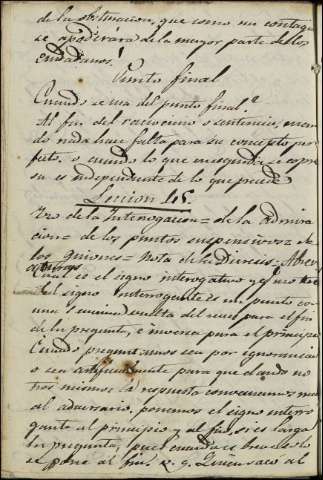 de la obstinacion, que como un contagio
se apoderára de la mayor parte de los
ciudadanos!
Punto final
Cuando se usa del punto final?
Al fin del raciocinio o sentencia, cuando
nada hace falta para su concepto per
fecto. o cuando lo que se espre
sa es independiente de lo que precede
Leccion 15.
Uso de la Interrogacion = de la Admira
cion = de los puntos suspensivos = de
los guiones = Nota de la Dieresis. Abrev
Cual es el signo interrogativo y su uso
del signo interrogante es un punto con
una vuelta del para el fin
de la pregunta, e inversa para el principio
Cuando preguntamos sea por ignorancia
o sea artificiosamente para que dando no
sotros mismos la respuesta convenzamos mas
al adversario, ponemos el signo interro
gante al principio y al fin, si es larga
la pregunta, pues cuando es breve solo
se pone al fin. v. g. Quien sacó al